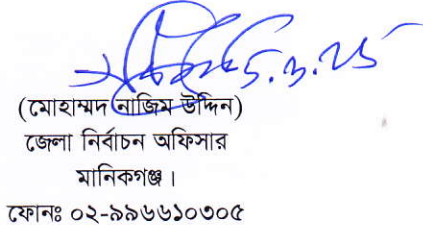 ৫.৩.২৫
(মোহাম্মদ নাজিম উদ্দিন)
জেলা নির্বাচন অফিসার
মানিকগঞ্জ।
ফোনঃ ০২-৯৯৬৬১০৩০৫